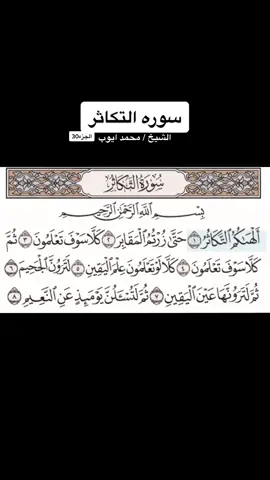 سوره التكاثر
الشيخ / محمد ايوب الجزء30
سُورَةُ التَّكَاثُرِ
بِسْمِ اللَّهِ الرَّحْمَٰنِ الرَّحِيمِ
أَلْهَىٰكُمُ التَّكَاثُرُ ١ حَتَّىٰ زُرْتُمُ الْمَقَابِرَ ٢ كَلَّا سَوْفَ تَعْلَمُونَ ٣ ثُمَّ
كَلَّا سَوْفَ تَعْلَمُونَ ٤ كَلَّا لَوْ تَعْلَمُونَ عِلْمَ الْيَقِينِ ٥ لَتَرَوُنَّ الْجَحِيمَ ٦
ثُمَّ لَتَرَوُنَّهَا عَيْنَ الْيَقِينِ ٧ ثُمَّ لَتُسْـَٔلُنَّ يَوْمَئِذٍ عَنِ النَّعِيمِ ٨